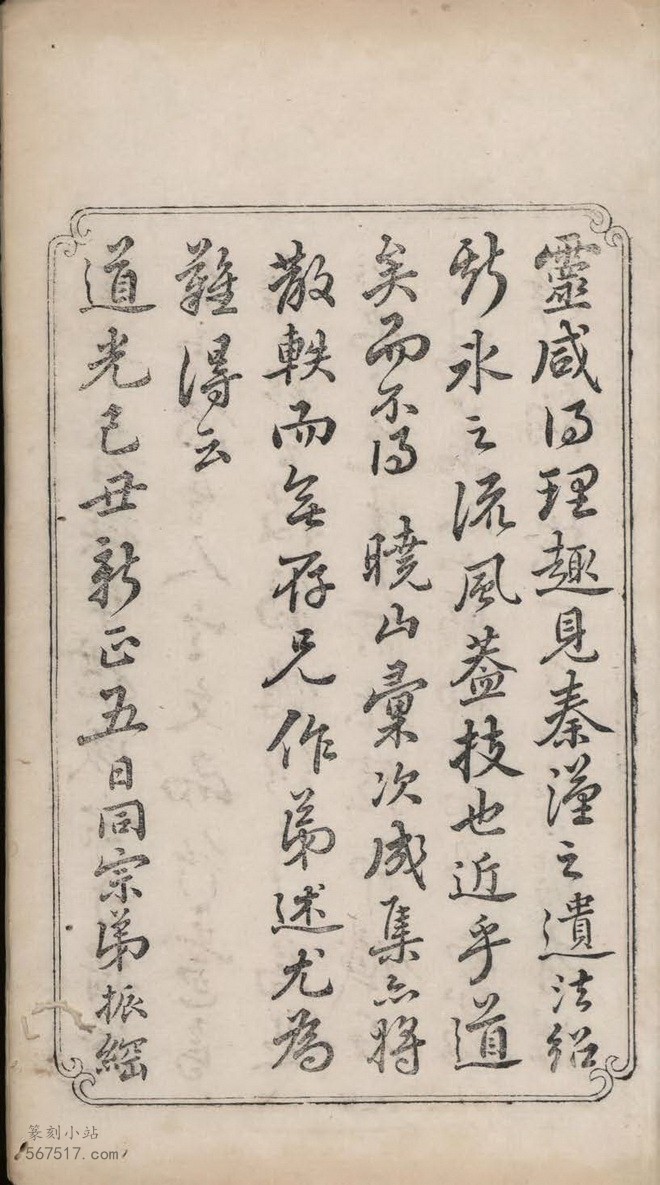 靈咸得理趣見秦漢之遺法紹
斯冰之流風蓋技也近乎道
矣而不得 曉山彙次成集亦將
散軼而無存兄作弟述尤為
難得云
道光己丑新正五日同宗弟振綱
篆刻小站
567517.com